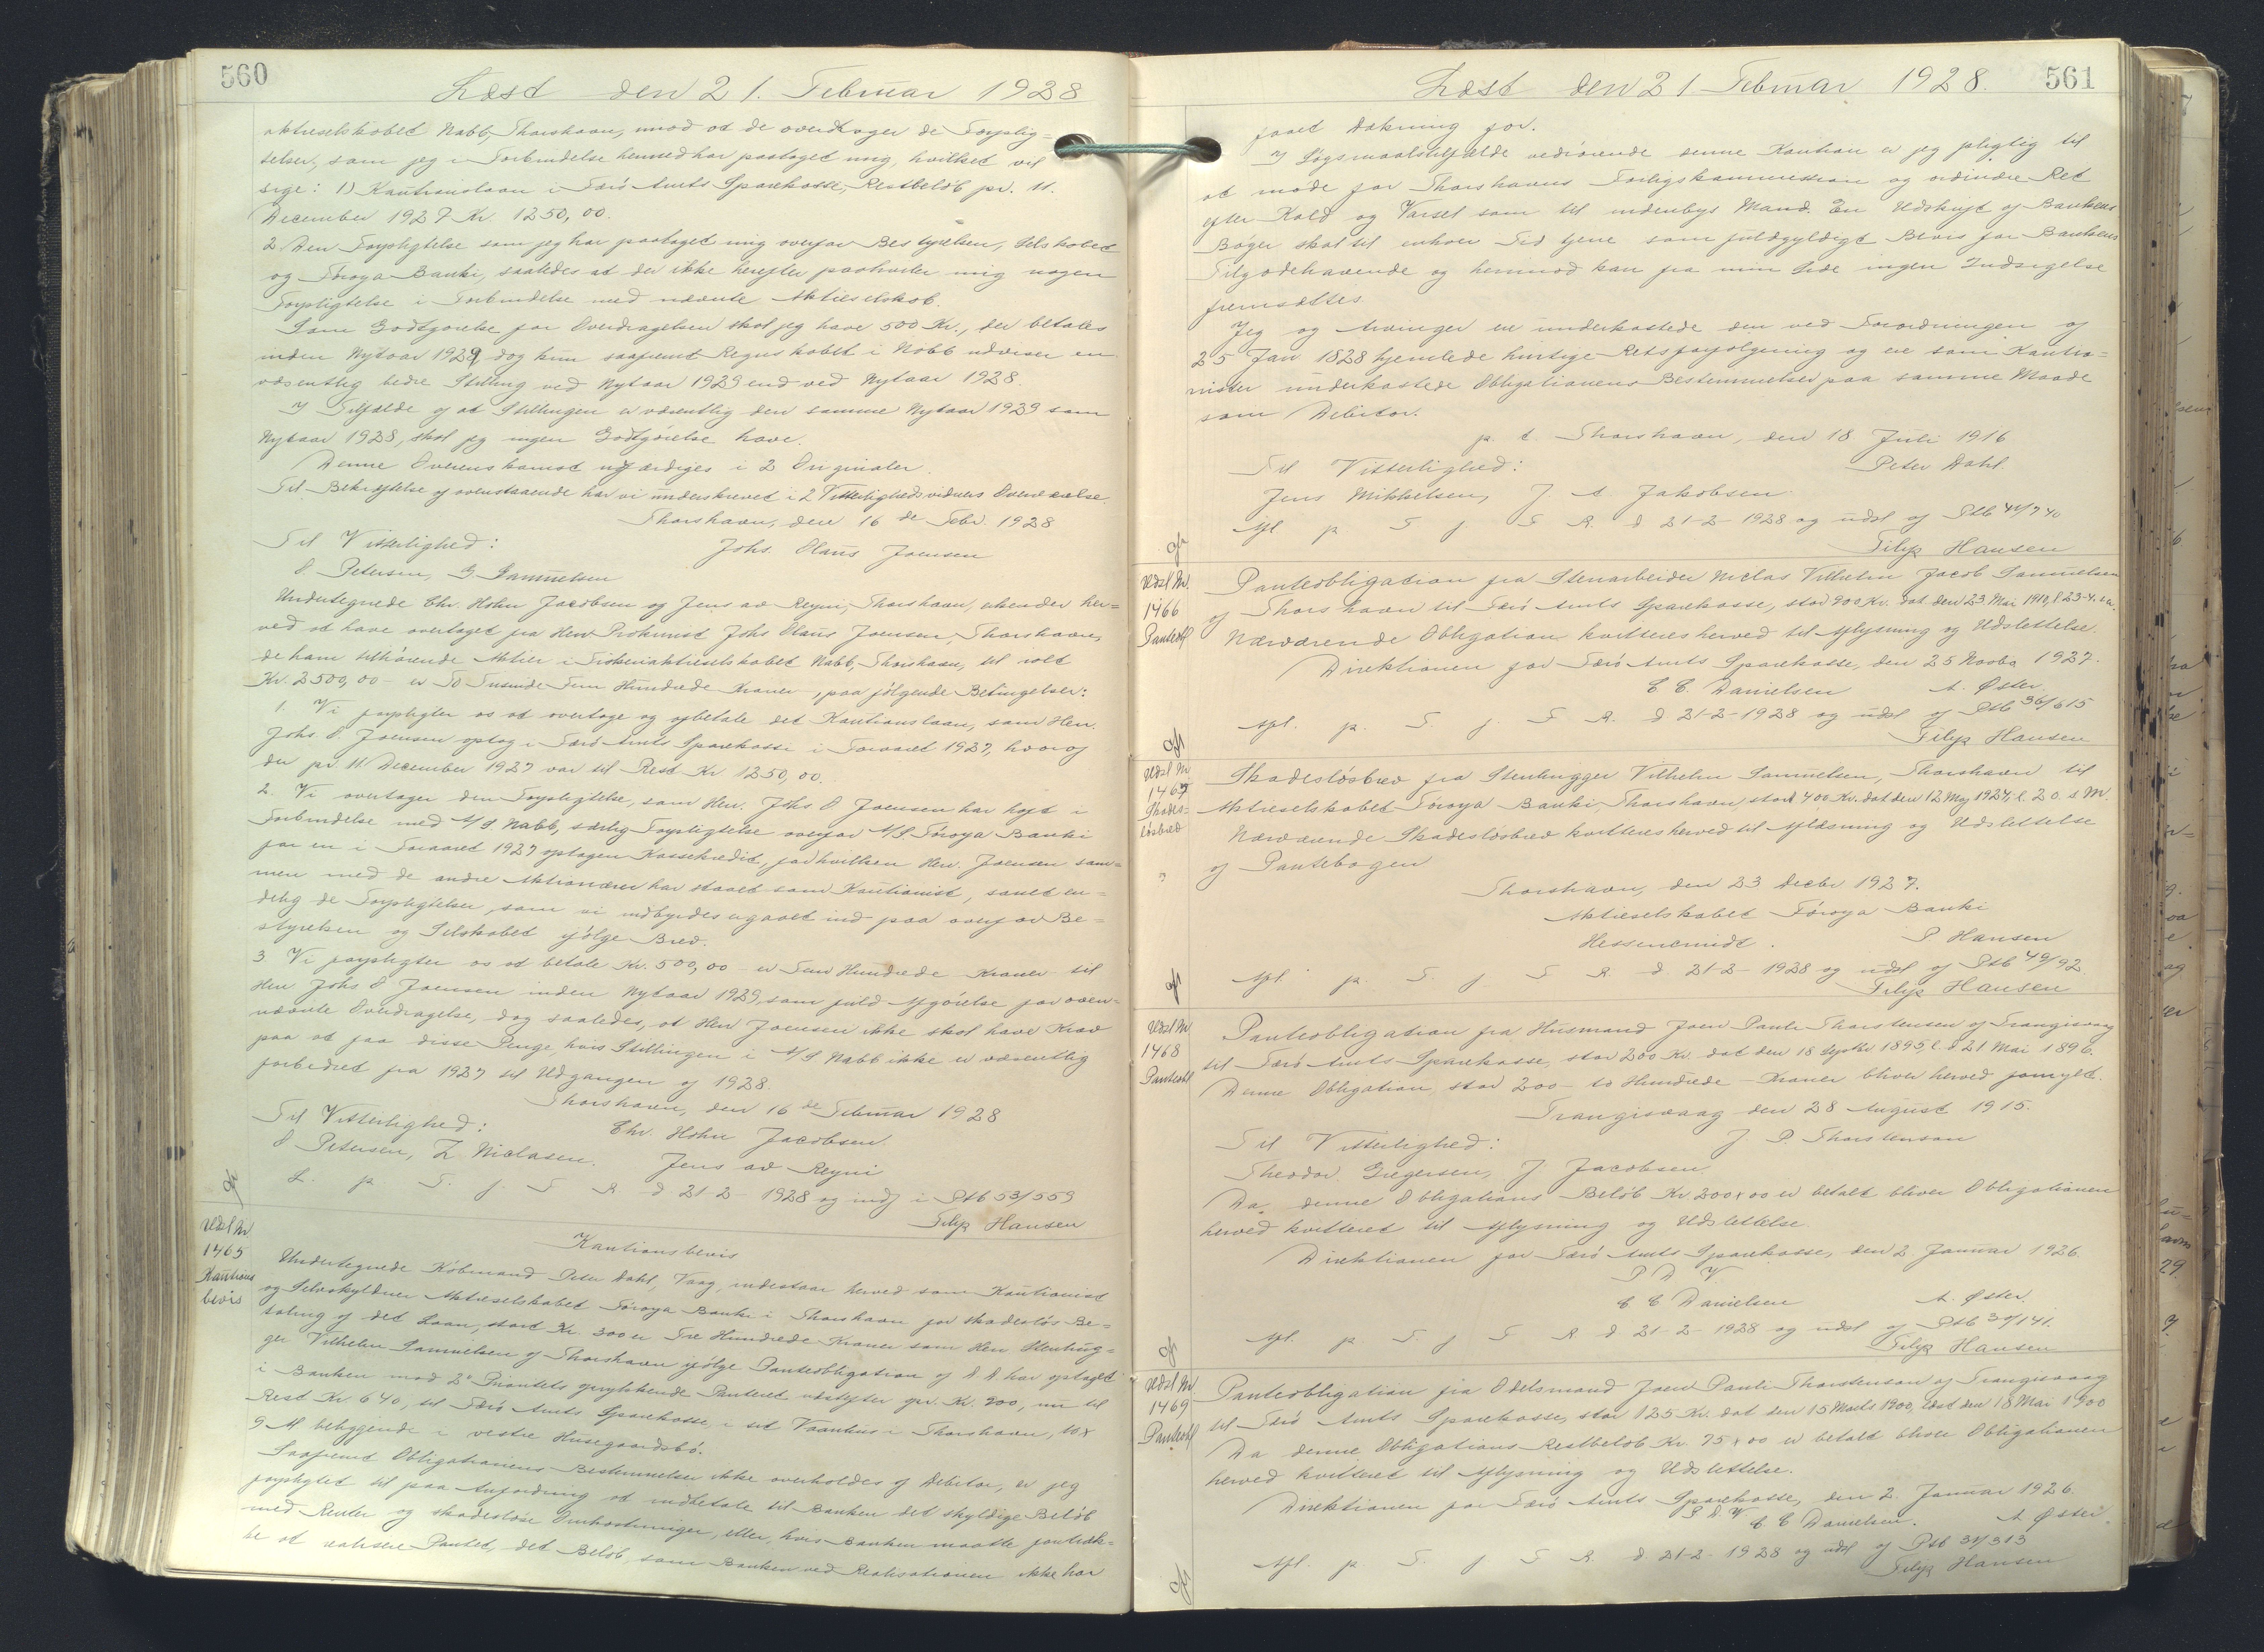 560
Læst den 21. Februar 1928
aktieselskabet Nabb, Thorshavn, imod at de overdrager de Forplig=
telser, som jeg i Forbindelse hermed har paataget mig, hvilket vil
sige: 1) Kautionslaan i Færø Amts Sparekasse, Restbeløb pr. 11.
December 1927 Kr. 1250,00.
2 Den Forpligtelse som jeg har paataget mig overfor Bestyrelsen, Selskabet
og Føroya Banki, saaledes at der ikke herefter paahviler mig nogen
Forpligtelse i Forbindelse med nævnte Aktieselskab.
Som Godtgørelse for Overdragelsen skal jeg have 500 Kr., der betales
inden Nytaar 1929, dog kun saafremt Regnskabet i Nabb udviser en
væsentlig bedre Stilling ved Nytaar 1929 end ved Nytaar 1928.
I Tilfælde af at Stillingen er væsentlig den samme Nytaar 1929 som
Nytaar 1928, skal jeg ingen Godtgørelse have.
Denne Overenskomst udfærdiges i 2 Originaler.
Til Bekræftelse af ovenstaaende har vi underskrevet i 2 Vitterlighedsvidners Overværelse
Thorshavn, den 16 de Febr. 1928
Til Vitterlighed: Johs. Olaus Joensen
O. Petersen, G. Samuelsen
Undertegnede Chr. Holm Jacobsen og Jens av Reyni, Thorshavn, erkender her=
ved at have overtaget fra Herr Prokurist Johs Olaus Joensen, Thorshavn,
de ham tilhørende Aktier i Fiskeriaktieselskabet Nabb, Thorshavn, til ialt
Kr. 2500,00 - er To Tusinde Fem Hundrede Kroner, paa følgende Betingelser:
1. Vi forpligter os at overtage og afbetale det Kautionslaan, som Herr.
Johs O. Joensen optog i Færø Amts Sparekasse i Foraaret 1927, hvoraf
der pr. 11. December 1927 var til Rest Kr 1250,00.
2. Vi overtager den Forpligtelse, som Herr. Johs O Joensen har haft i
Forbindelse med A/S Nabb, særlig Forpligtelse overfor A/S Føroya Banki
for en i Foraaret 1927 optagen Kassekredit, for hvilken Herr. Joensen sam=
men med de andre Aktionærer har staaet som Kautionist, samt en=
delig de Forpligtelser, som vi indbyrdes er gaaet ind paa overfor Be=
styrelsen og Selskabet ifølge Brev.
3 Vi forpligter os at betale Kr. 500,00 - er Fem Hundrede Kroner til
Herr Johs O Joensen inden Nytaar 1929, som fuld Afgørelse for oven=
nævnte Overdragelse, dog saaledes, at Herr Joensen ikke skal have Krav
paa at faa disse Penge, hvis Stillingen i A/S Nabb ikke er væsentlig
forbedret fra 1927 til Udgangen af 1928.
Thorshavn, den 16 de Februar 1928
Til Vitterlighed: Chr. Holm Jacobsen.
O Petersen, Z Niclasen. Jens av Reyni
L. p. T. f. F R d 21-2- 1928 og indf i Ptb 53/559
Filip Hansen
Udsl Nr
1465
Kautions
bevis
Kautionsbevis
Undertegnede Købmand Peter Dahl, Vaag, indestaar herved som Kautionist
og Selvskyldner Aktieselskabet Føroya Banki i Thorshavn for skadesløs Be=
taling af det Laan, stort Kr. 300 er Tre Hundrede Kroner som Herr Stenhug=
ger Vilhelm Samuelsen af Thorshavn ifølge Panteobligation af D.D. har optaget
i Banken mod 2den Prioritets oprykkende Panteret næstefter opr. Kr. 900, nu til
Rest Kr. 640, til Færø Amts Sparekasse, i sit Vaanhus i Thorshavn, 10 x
9 Al beliggende i vestre Husegaardsbø.
Saafremt Obligationens Bestemmelser ikke overholdes af Debitor, er jeg
forpligtet til paa Anfordring at indbetale til Banken det skyldige Beløb
med Renter og skadesløse Omkostninger, eller, hvis Banken maatte foretræk=
ke at realisere Pantet, det Beløb, som Banken ved Realisationen ikke har
561
Læst den 21 Februar 1928.
faaet Dækning for.
I Søgsmaalstilfælde vedrørende denne Kaution er jeg pligtig til
at møde for Thorshavns Forligskommission og ordinære Ret
efter Kald og Varsel som til indenbys Mand. En Udskrift af Bankens
Bøger skal til enhver Tid tjene som fuldgyldigt Bevis for Bankens
Tilgodehavende og herimod kan fra min Side ingen Indsigelse
fremsættes
Jeg og Arvinger er underkastede den ved Forordningen af
25 Jan 1828 hjemlede hurtige Retsforfølgning og er som Kautio=
nister underkastede Obligationens Bestemmelser paa samme Maade
som Debitor.
p. t. Thorshavn, den 18 Juli 1916
Til Vitterlighed: Peter Dahl.
Jens Mikkelsen, J A Jakobsen.
Afl p T f F R. d 21-2-1928 og udsl af Ptb 44/740
Filip Hansen
Udsl Nr.
1466
Panteobl
Panteobligation fra Stenarbeider Niclas Vilhelm Jacob Samuelsen
af Thorshavn til Færø Amts Sparekasse, stor 900 Kr. dat den 23. Mai 1910, l 23-4. s.a.
Nærværende Obligation kvitteres herved til Aflysning og Udslettelse.
Direktionen for Færø Amts Sparekasse, den 25 Novbr 1927.
C C. Danielsen A. Øster
Afl. p. T. f F R. d 21-2-1928 og udsl af Ptb 36/615
Filip Hansen
Udsl Nr
1467
Skades-
løsbrev
Skadesløsbrev fra Stenhugger Vilhelm Samuelsen, Thorshavn til
Aktieselskabet Føroya Banki, Thorshavn, stort 400 Kr. dat den 12 Maj 1924, l. 20. s M.
Nærværende Skadesløsbrev kvitteres herved til Aflæsning og Udslettelse
af Pantebogen
Thorshavn, den 23 Decbr 1927.
Aktieselskabet Føroya Banki
P Hansen
Afl p. T f. F R d. 21-2- 1928 og udsl af Ptb 49/92
Filip Hansen
Udsl Nr
1468
Panteobl
Panteobligation fra Husmand Joen Pauli Thorstensen af Trangisvaag
til Færø Amts Sparekasse, stor 200 Kr. dat den 18 Septbr 1895, l. d 21 Mai 1896.
Denne Obligation, stor 200 - to Hundrede - Kroner bliver herved fornyet.
Trangisvaag den 28 August 1915.
Til Vitterlighed: J P. Thorstenson
Theodor. Gregersen, J. Jacobsen
Da denne Obligations Beløb Kr. 200x00 er betalt bliver Obligationen
herved kvitteret til Aflysning og Udslettelse.
Direktionen for Færø Amts Sparekasse, den 2 Januar 1926.
P D V
C C Danielsen A. Øster.
Afl. p T f F R d 21-2-1928 og udsl af Ptb 30/141.
Filip Hansen
Udsl Nr
1469
Panteobl
Panteobligation fra Odelsmand Joen Pauli Thorstenson af Trangisvaag
til Færø Amts Sparekasse, stor 125 Kr. dat den 15 Marts 1900, læst den 18 Mai 1900
Da denne Obligations Restbeløb Kr. 75x00 er betalt bliver Obligationen
herved kvitteret til Aflysning og Udslettelse.
Direktionen for Færø Amts Sparekasse, den 2. Januar 1926.
P D V C. C Danielsen. A Øster.
Afl. p T. f F R. d 21-2-1928 og udsl af Ptb 31/313
Filip Hansen